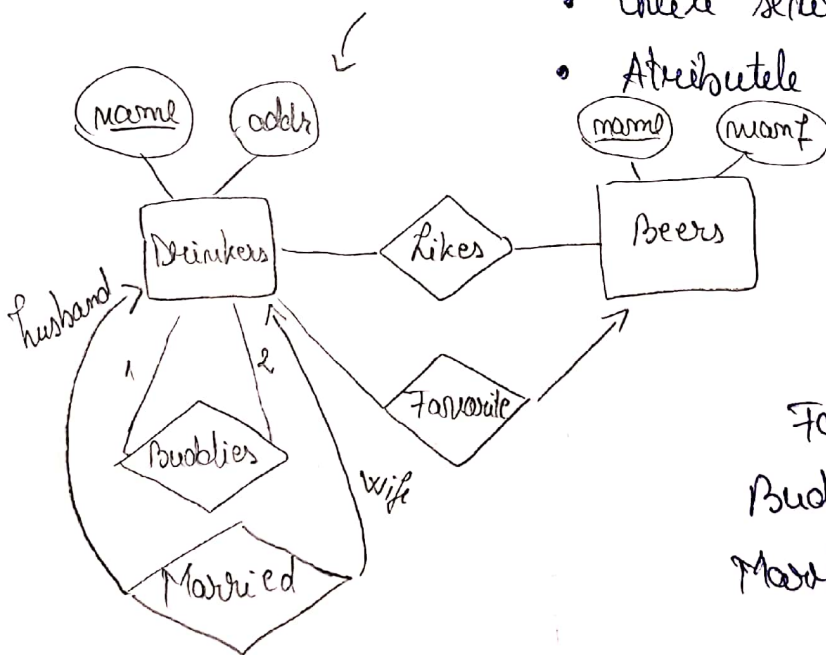 • Atributele
name addr
name manf
Drinkers Likes Beers
husband
1 2
Favorite
Buddies
wife
Married
Fa
Bud
Mar